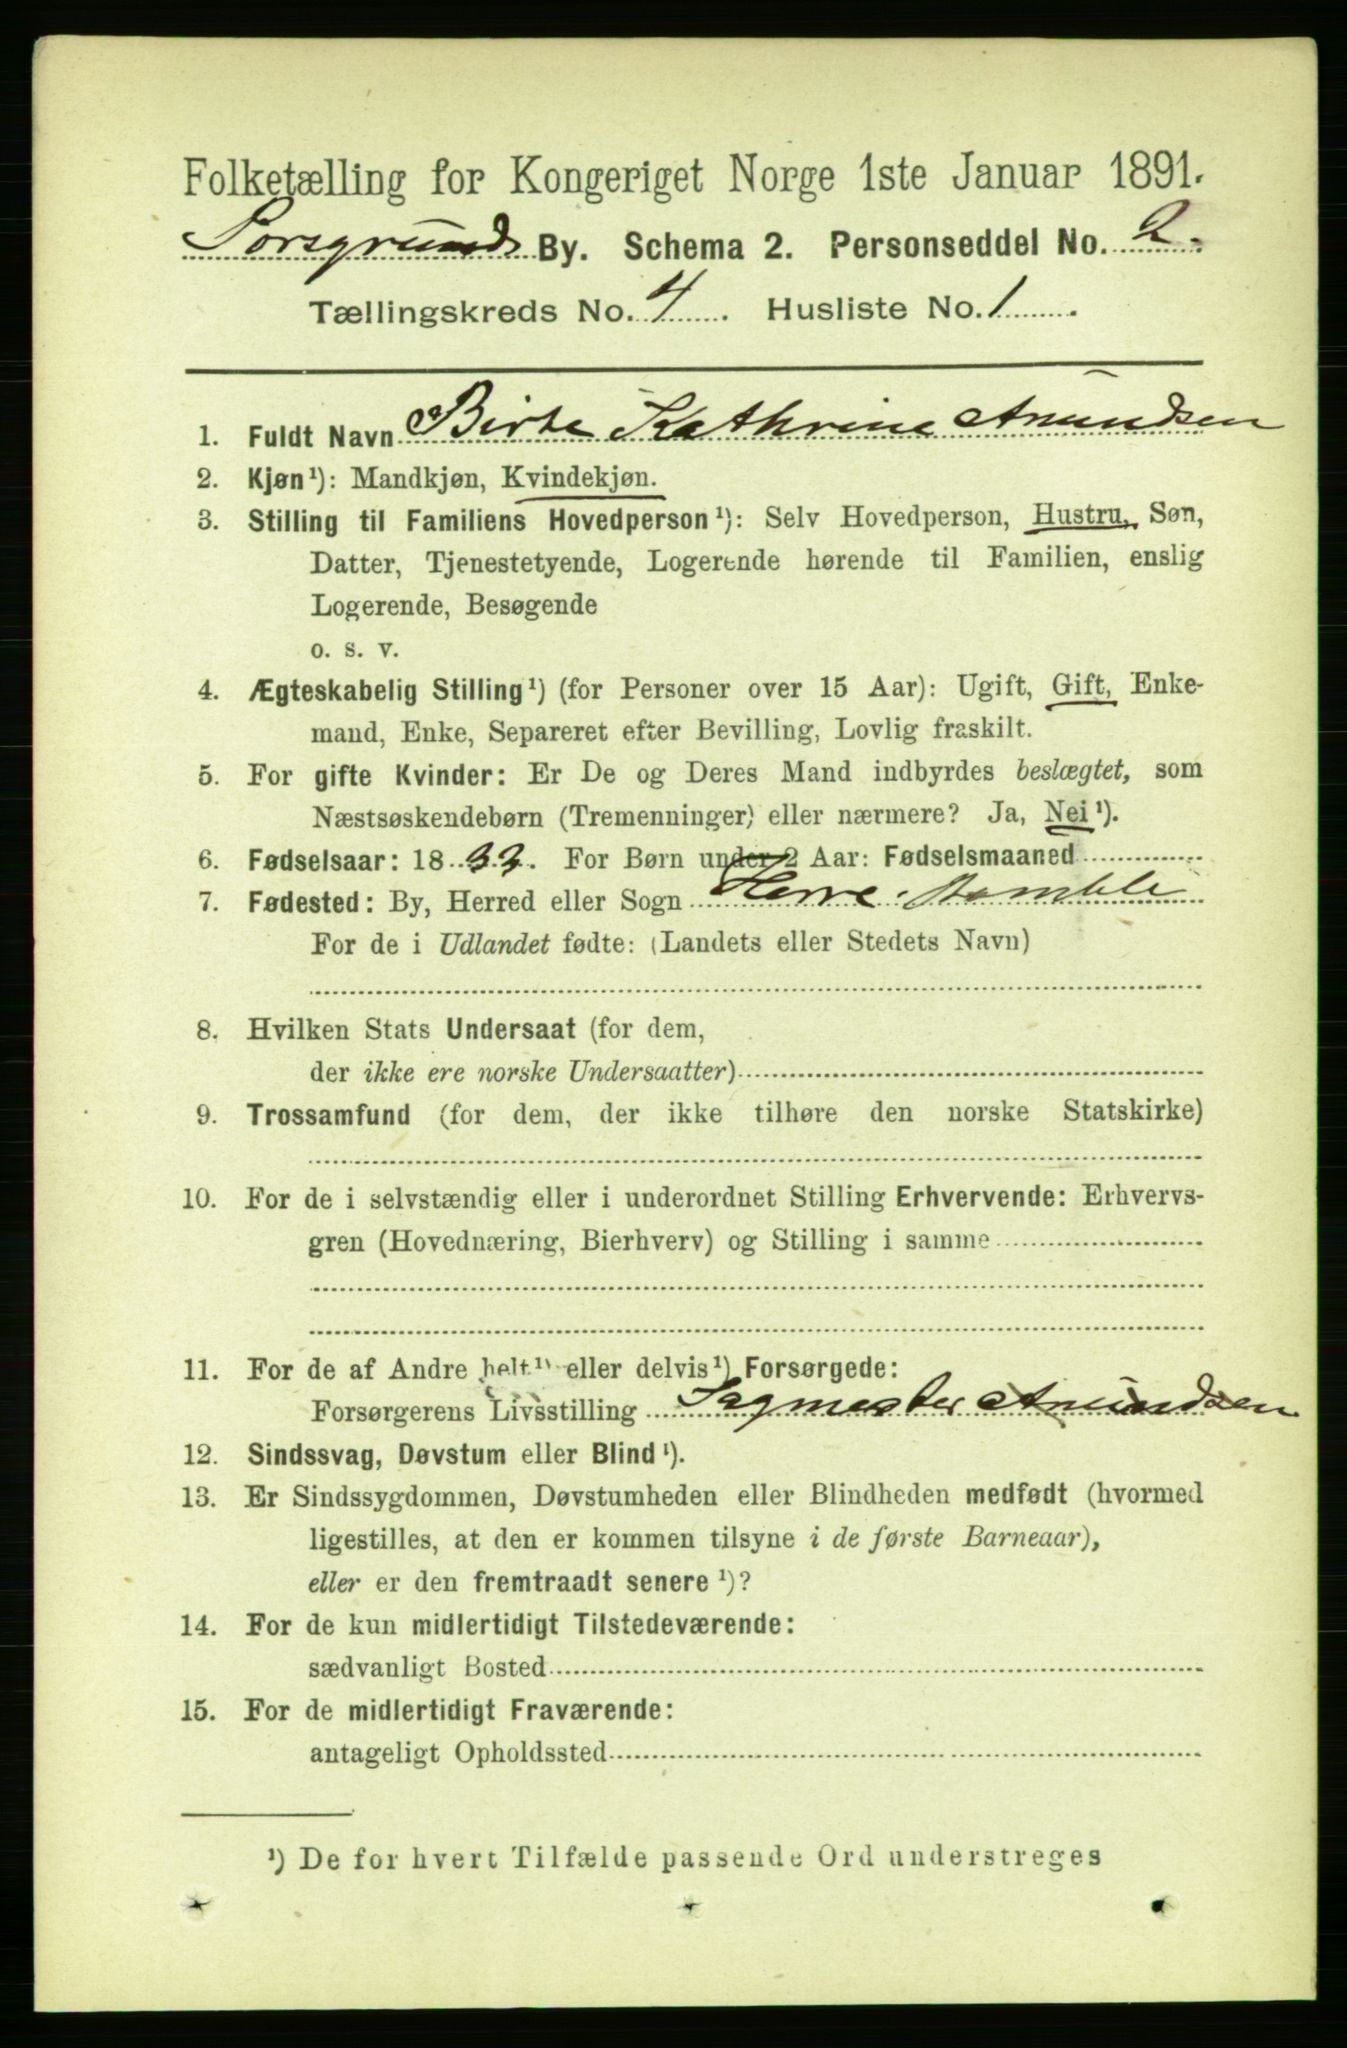 Folketælling for Kongeriget Norge 1ste Januar 1891.
Porsgrund By. Schema 2. Personseddel No. 2.
Tællingskreds No. 4. Husliste No. 1.
1. Fuldt Navn Birte Kathrine Amundsen
2. Kjøn¹): Mandkjøn, Kvindekjøn.
3. Stilling til Familiens Hovedperson¹): Selv Hovedperson, Hustru, Søn,
Datter, Tjenestetyende, Logerende hørende til Familien, enslig
Logerende, Besøgende
o. s. v.
4. Ægteskabelig Stilling¹) (for Personer over 15 Aar): Ugift, Gift, Enke-
mand, Enke, Separeret efter Bevilling, Lovlig fraskilt.
5. For gifte Kvinder: Er De og Deres Mand indbyrdes beslægtet, som
Næstsøskendebørn (Tremenninger) eller nærmere? Ja, Nei¹).
6. Fødselsaar: 1833. For Børn under 2 Aar: Fødselsmaaned
7. Fødested: By, Herred eller Sogn Herre Bamble
For de i Udlandet fødte: (Landets eller Stedets Navn)
8. Hvilken Stats Undersaat (for dem,
der ikke ere norske Undersaatter)
9. Trossamfund (for dem, der ikke tilhøre den norske Statskirke)
10. For de i selvstændig eller i underordnet Stilling Erhvervende: Erhvervs-
gren (Hovednæring, Bierhverv) og Stilling i samme
11. For de af Andre helt¹) eller delvis¹) Forsørgede:
Forsørgerens Livsstilling Sagmester Amundsen
12. Sindssvag, Døvstum eller Blind¹).
13. Er Sindssygdommen, Døvstumheden eller Blindheden medfødt (hvormed
ligestilles, at den er kommen tilsyne i de første Barneaar),
eller er den fremtraadt senere¹)?
14. For de kun midlertidigt Tilstedeværende:
sædvanligt Bosted
15. For de midlertidigt Fraværende:
antageligt Opholdssted
¹) De for hvert Tilfælde passende Ord understreges